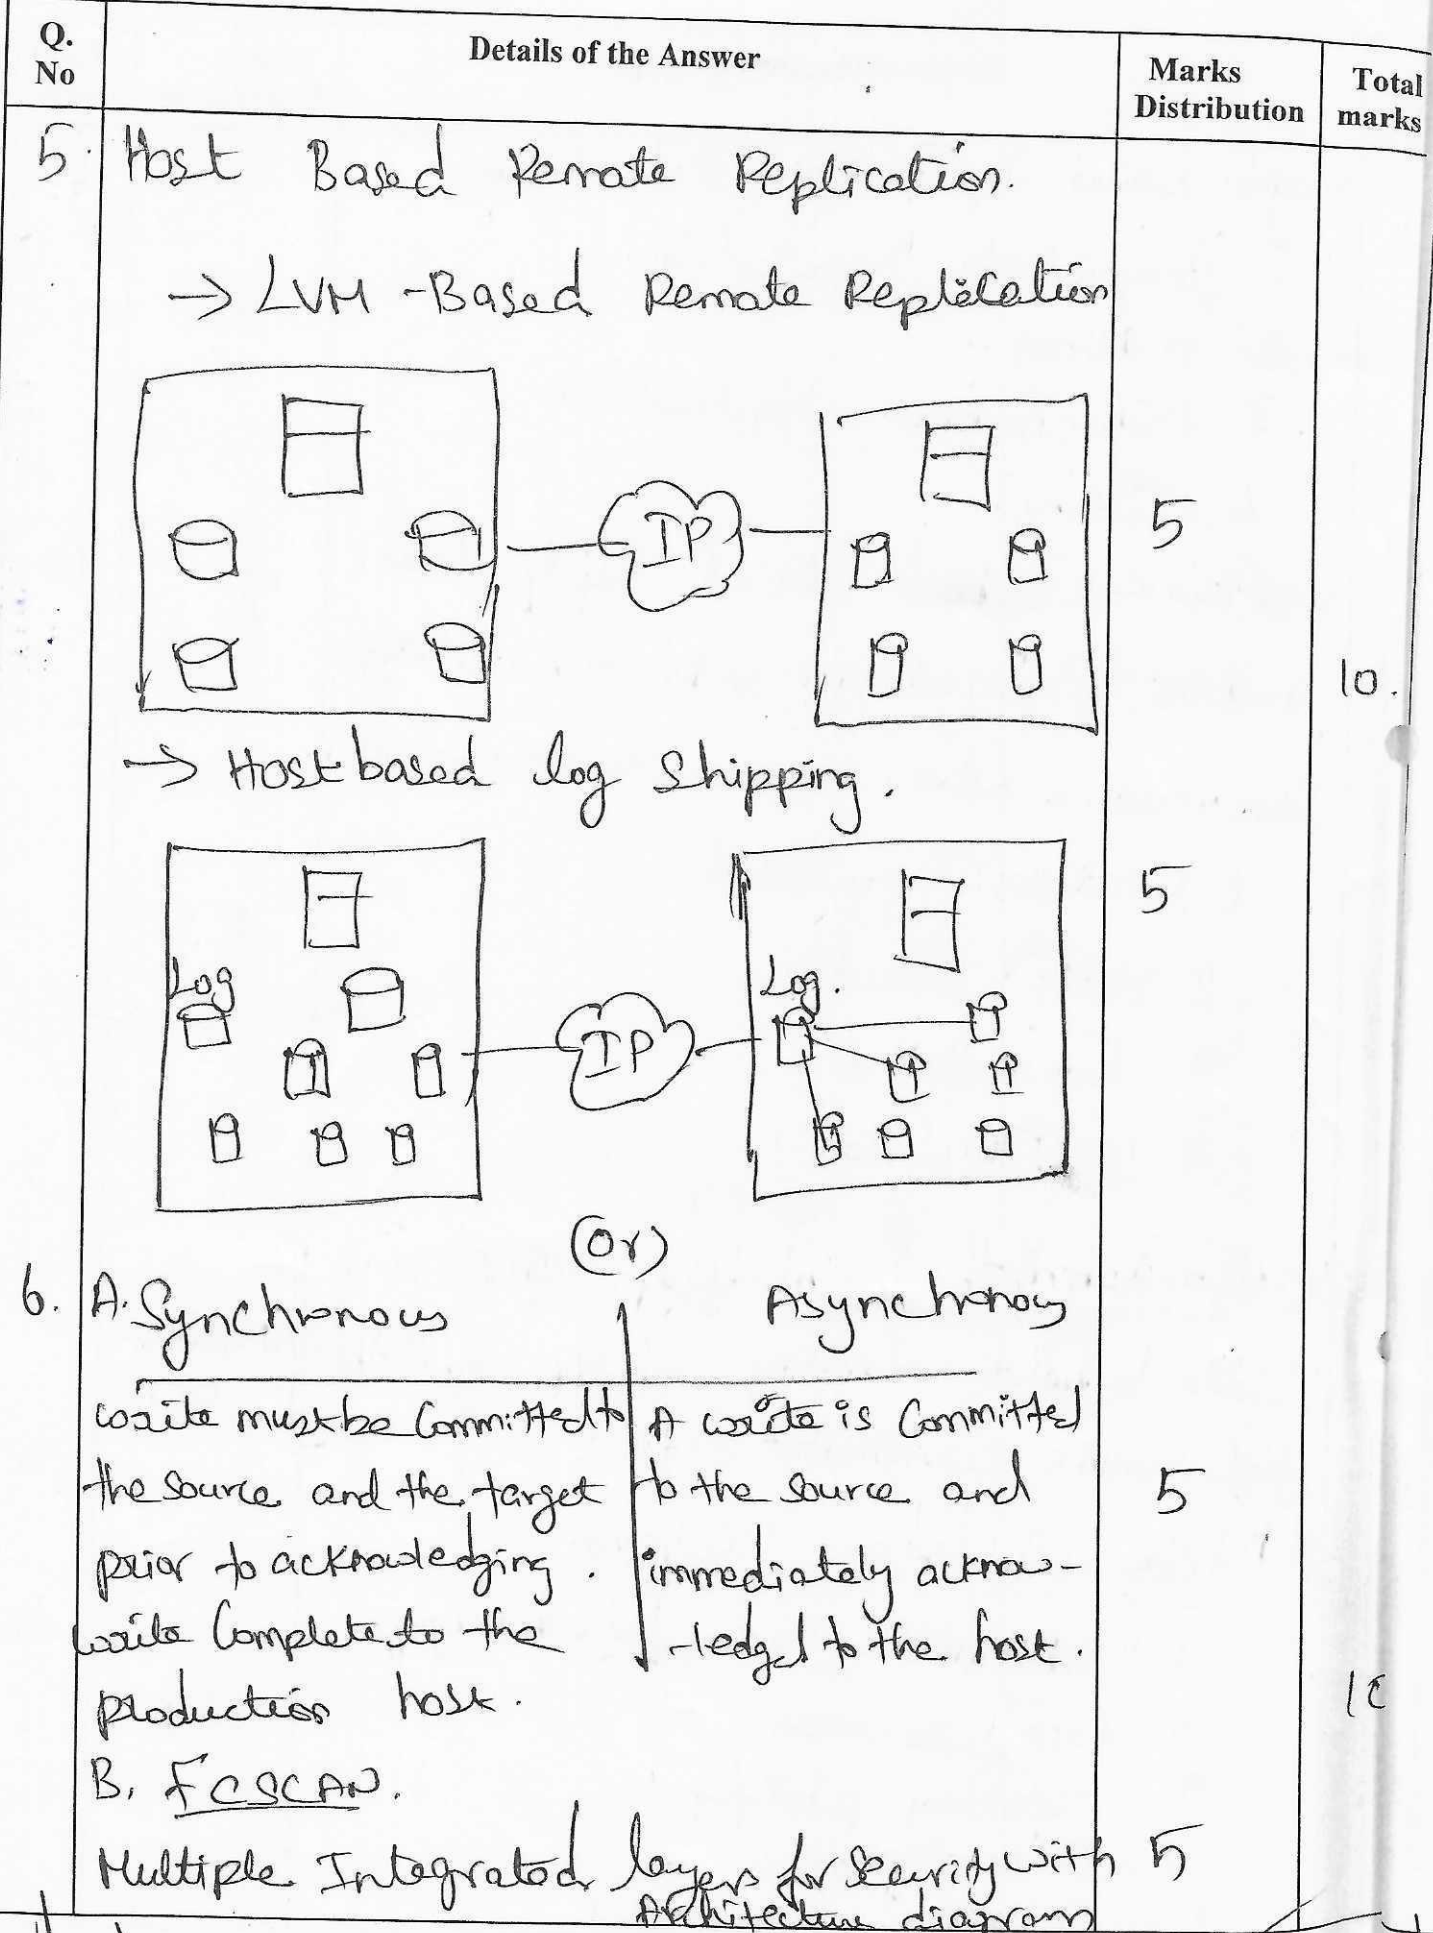 Q. No
Details of the Answer
Marks Distribution
Total marks
5. Host Based Remote Replication.
→ LVM -Based Remote Replication
IP
5
10.
→ Host based log Shipping.
5
Log
Log.
IP
(Or)
6. A. Synchronous
Asynchronous
write must be Committed to
the source and the target
prior to acknowledging.
write Complete to the
production host.
A write is Committed
to the source and
immediately acknow-
-ledged to the host.
5
10
B. FCSCAN.
Multiple Integrated layers for Security with
Architecture diagram
5